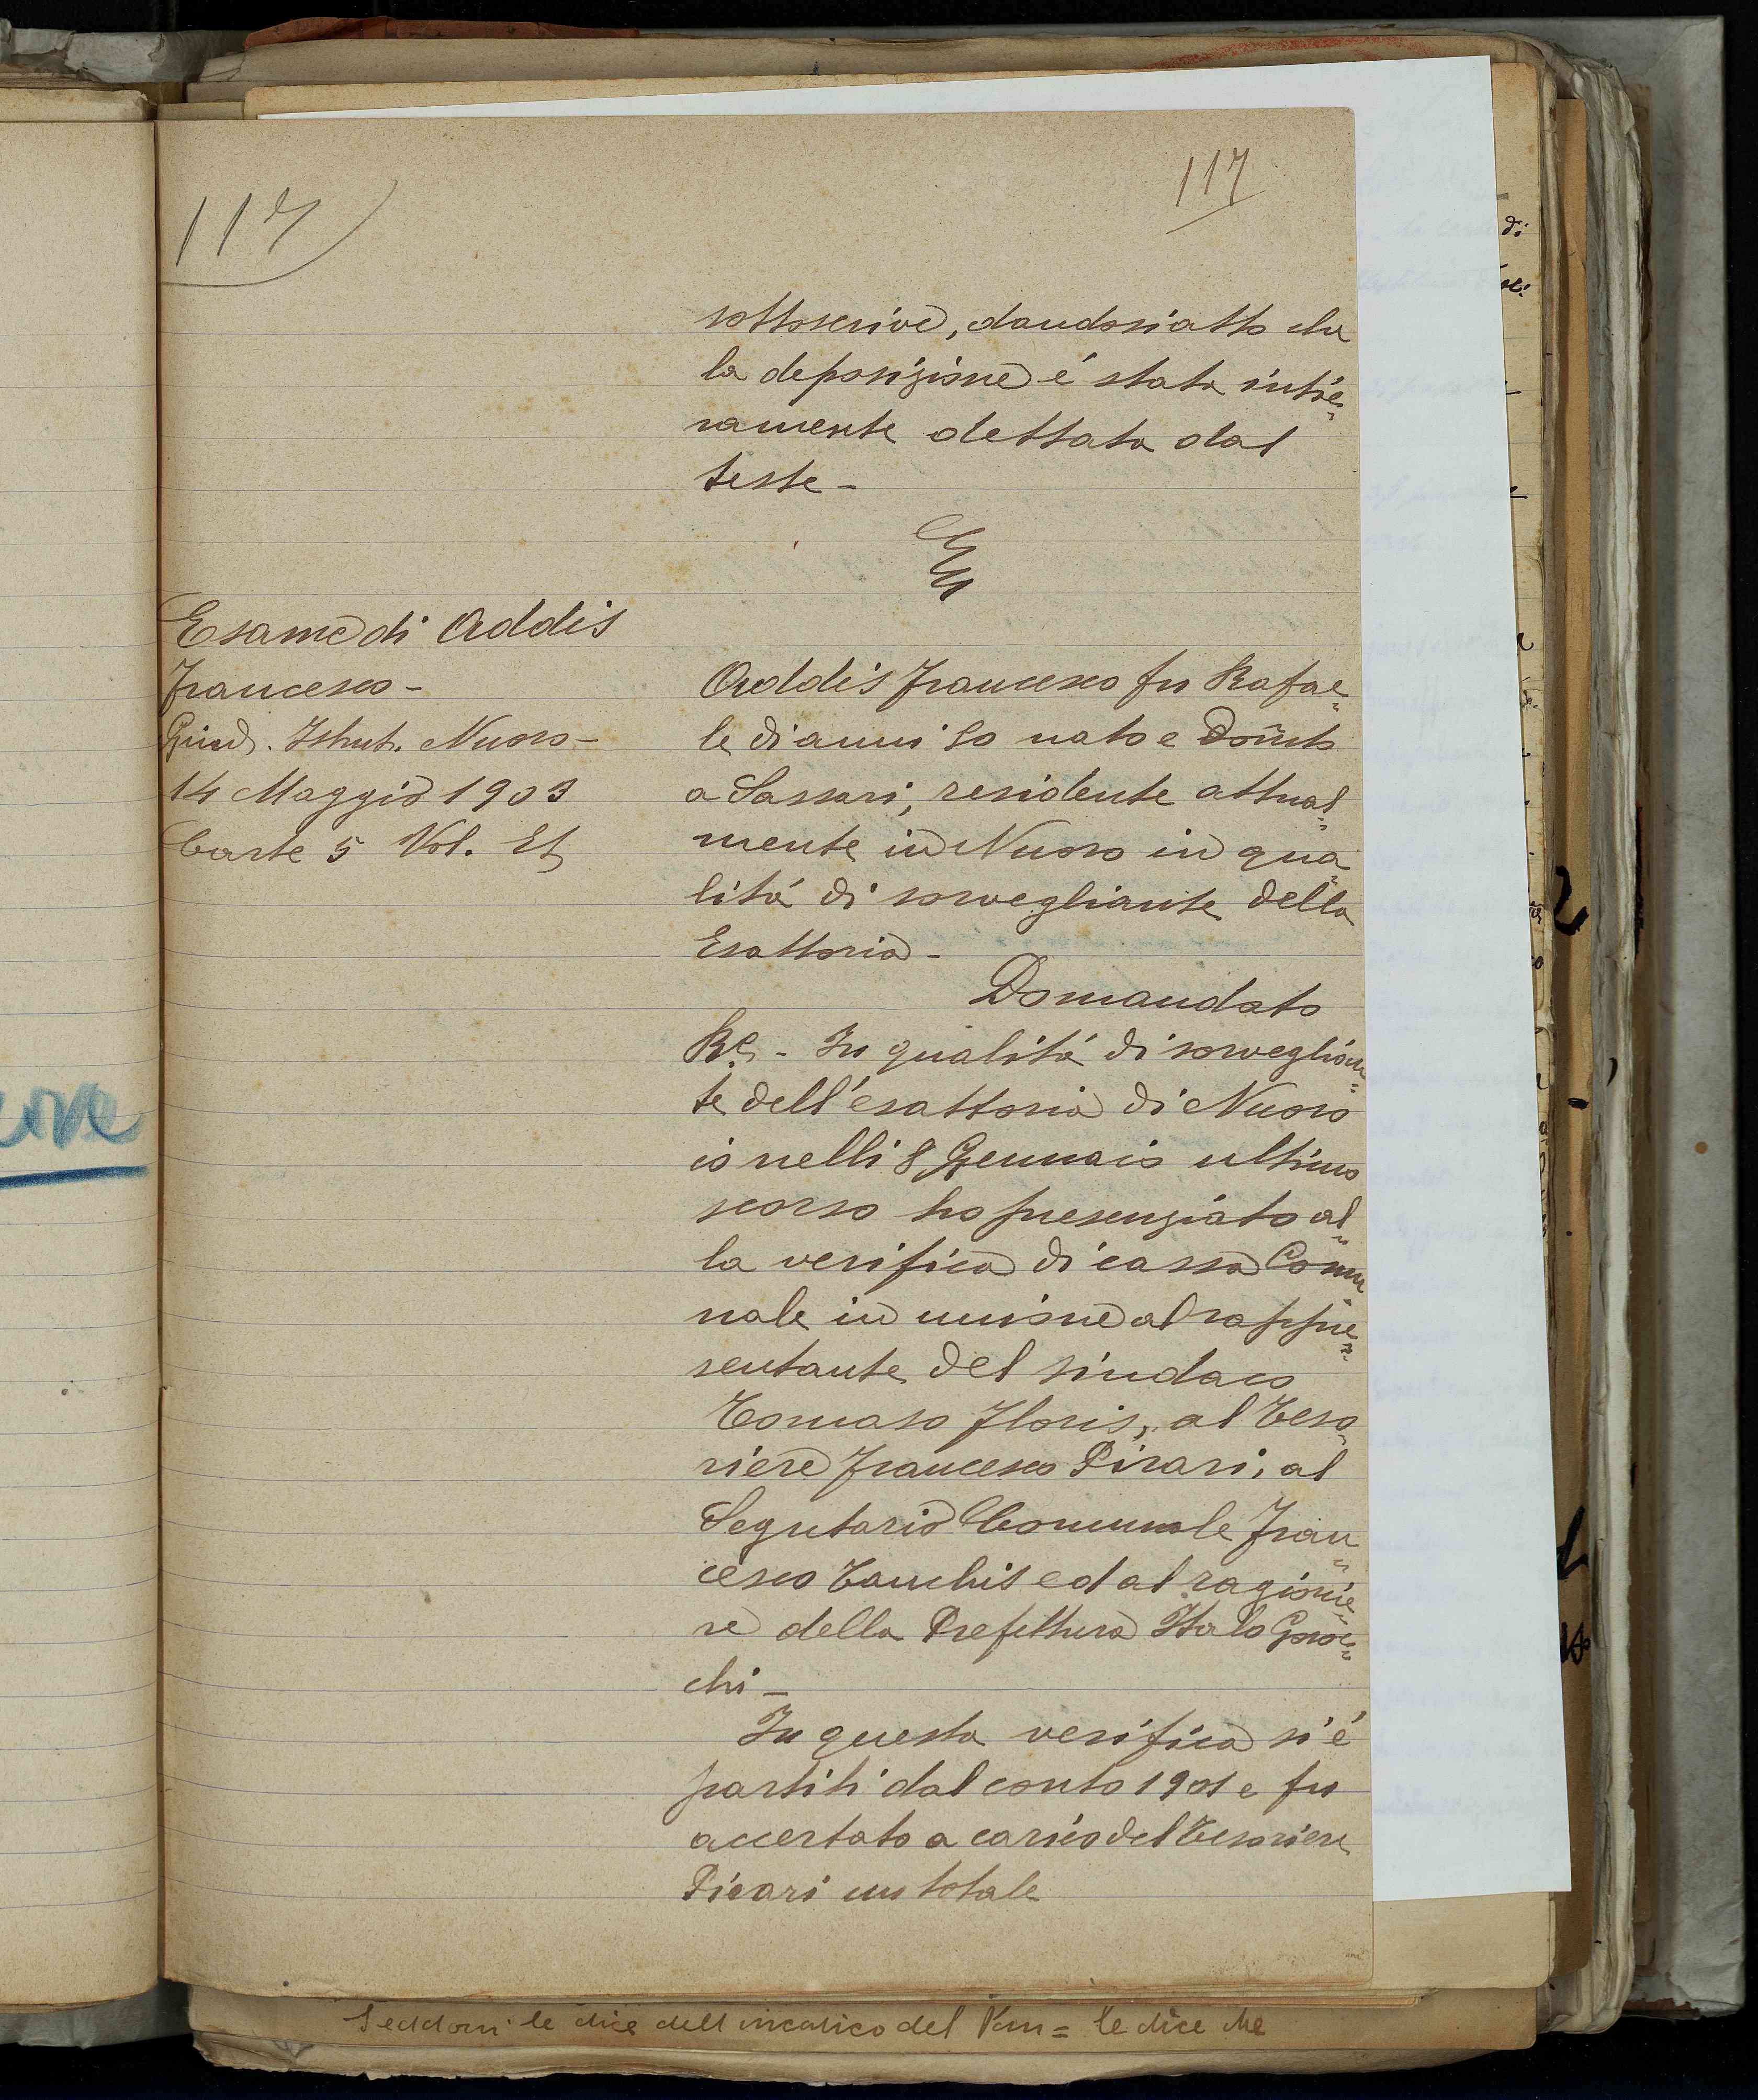 117
117
sottoscrive, dandosi atto che
la deposizione é stata intie=
ramente dettata dal
teste -
Esame di Addis
Francesco -
Giud. Istrut. Nuoro -
14 Maggio 1903
Carte 5 Vol. Et
Addis Francesco fu Rafae=
le di anni 50 nato e Dom̃to
a Sassari, residente attual=
mente in Nuoro in qua=
litá di sorvegliante della
Esattoria -
Domandato
R.e - In qualitá di sorveglian=
te dell'esattoria di Nuoro
io nelli 8 Gennaio ultimo
scorso ho presenziato al=
la verifica di cassa Comu=
nale in unione al rappre=
sentante del sindaco
Tomaso Floris, al Teso=
riere Francesco Pirari, al
Segretario Comunale Fran=
cesco Tanchis ed al ragionie=
re della Prefettura Italo
chi -
In questa verifica si é
partiti dal conto 1901 e fu
accertato a carico del Tesoriere
Pirari un totale
le dice dell'incarico del = le dice che